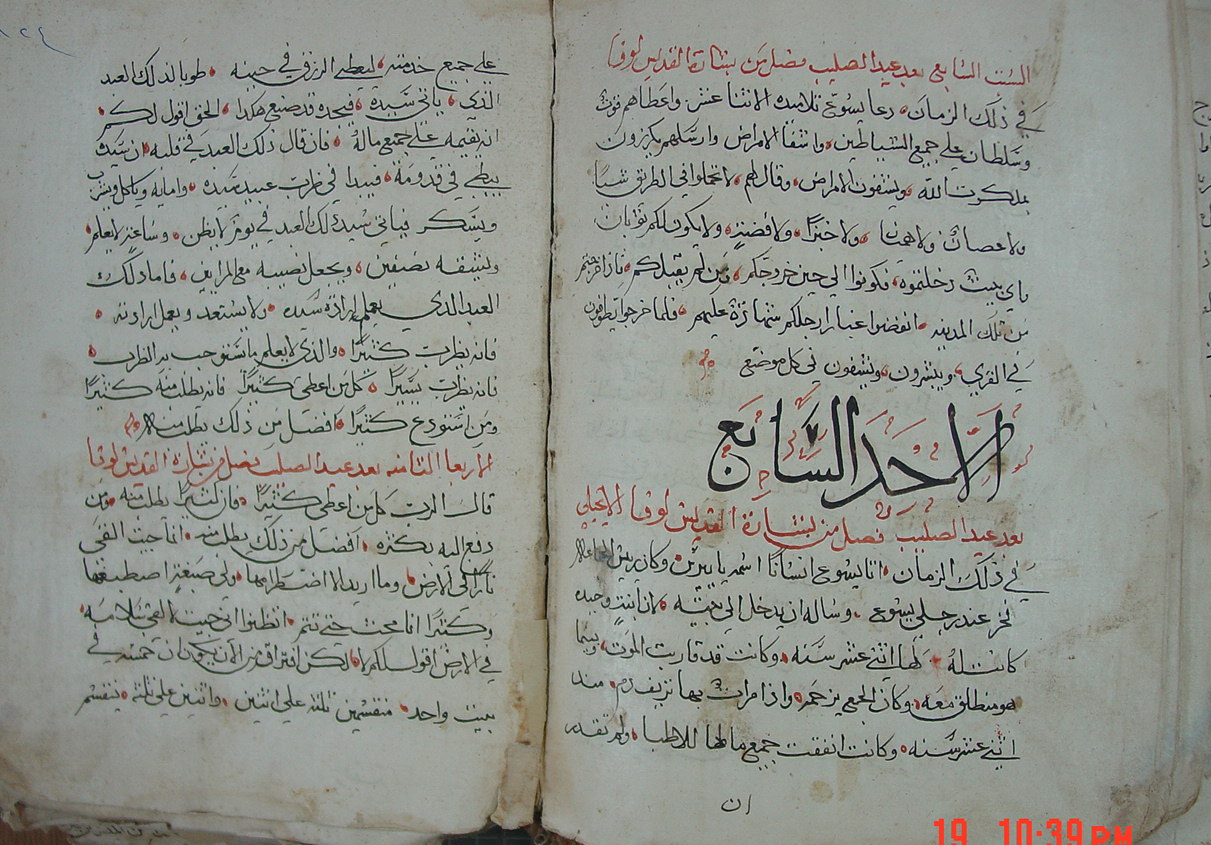 السبت السابع بعد عيد الصليب فصل من بشارة القديس لوقا
في ذلك الزمان دعا يسوع تلاميذه الاثنا عشر واعطاهم قوت
وسلطان علي جميع الشياطين واشفا الامراض وارسلهم يكرزون
بملكوت الله ويشفون الامراض وقال لهم لا تحملوا في الطريق شيا
ولا عصا ولا هميانا ولا خبزا ولا فضة ولا يكون لكم ثوبان
باي بيت دخلتموه فكونوا الي حين خروجكم ومن لم يقبلكم فاذا خرجتم
من تلك المدينه انفضوا غبار ارجلكم شهادة عليهم فلما خرجوا يطوفون
في القري ويبشرون ويشفون في كل موضع
الاحد السابع
بعد عيد الصليب فصل من بشارة القديس لوقا الانجيلي
في ذلك الزمان اتا يسوع انسانا اسمه يايرس وكان ريس الجماعه
فخر عند رجلي يسوع وساله ان يدخل الي بيته لان ابنت وحيده
كانت له لها اثني عشر سنه وكانت قد قاربت الموت وبينما
هو منطلق معه وكان الجمع يزحمه واذا مراة بها نزيف دم منذ
اثني عشر سنه وكانت انفقت جميع مالها للاطبا ولم تقدر
ان
١٢٤
علي جميع خدمته ليعطي الرزق في حينه طوبا لذلك العبد
الذي ياتي سيده فيجده قد صنع هكذا الحق اقول لكم
انه يقيمه علي جميع ماله فان قال ذلك العبد في قلبه ان سيدي
يبطي في قدومه فيبدا في ضرب عبيد سيده وامايه وياكل ويشرب
ويسكر فياتي سيد ذلك العبد في يوم لا يظن وساعة لا يعلم
ويشقه نصفين ويجعل نصيبه مع المرايين فاما ذلك
العبد الذي يعلم ارادة سيده ولا يستعد ويعمل ارادته
فانه يضرب كثيرا والذي لا يعلم ما يستوجب به الضرب
فانه يضرب يسيرا كل من اعطي كثيرا فانه يطلب منه كثيرا
ومن استودع كثيرا افضل من ذلك يطلب منه
الاربعا الثامنه بعد عيد الصليب فصل من بشارة القديس لوقا
قال الرب كل من اعطي كثيرا فان كثيرا يطلب منه ومن
دفع اليه بكثره افضل من ذلك يطلب منه انما جيت القي
نارا في الارض وما اريد الا اضطرامها ولي صبغة اصطبغها
وكثيرا انا محث حتي تتم اتظنوا اني جيت القي سلامه
في الارض اقول لكم لا لكن افتراق من الان يكون ان خمسه في
بيت واحد منقسمين ثلثه علي اثنين واثنين علي ثلثه ينقسم
19 10:39 PM